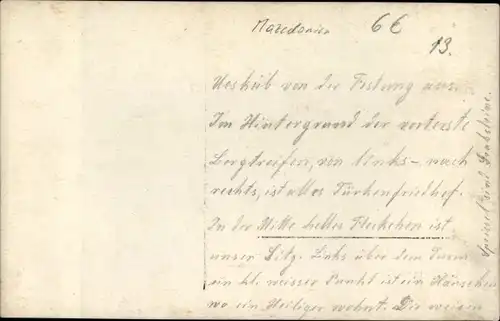 Mazedonien
6€
13.
Ueskúb von der Festung aus.
Im Hintergrund der vorterste
Bergstreifen, von links - nach
rechts, ist altes Türkenfriedhof.
In der Mitte helles Fleckchen ist
unser Sitz. Links über dem Turm
ein kl. weisser Punkt ist ein Häuschen
wo ein Heiliger wohnt. Die weissen
und Grabsteine.